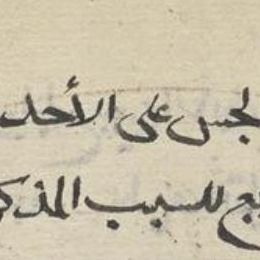 لجس على الأحد
يع للسبب المذكو